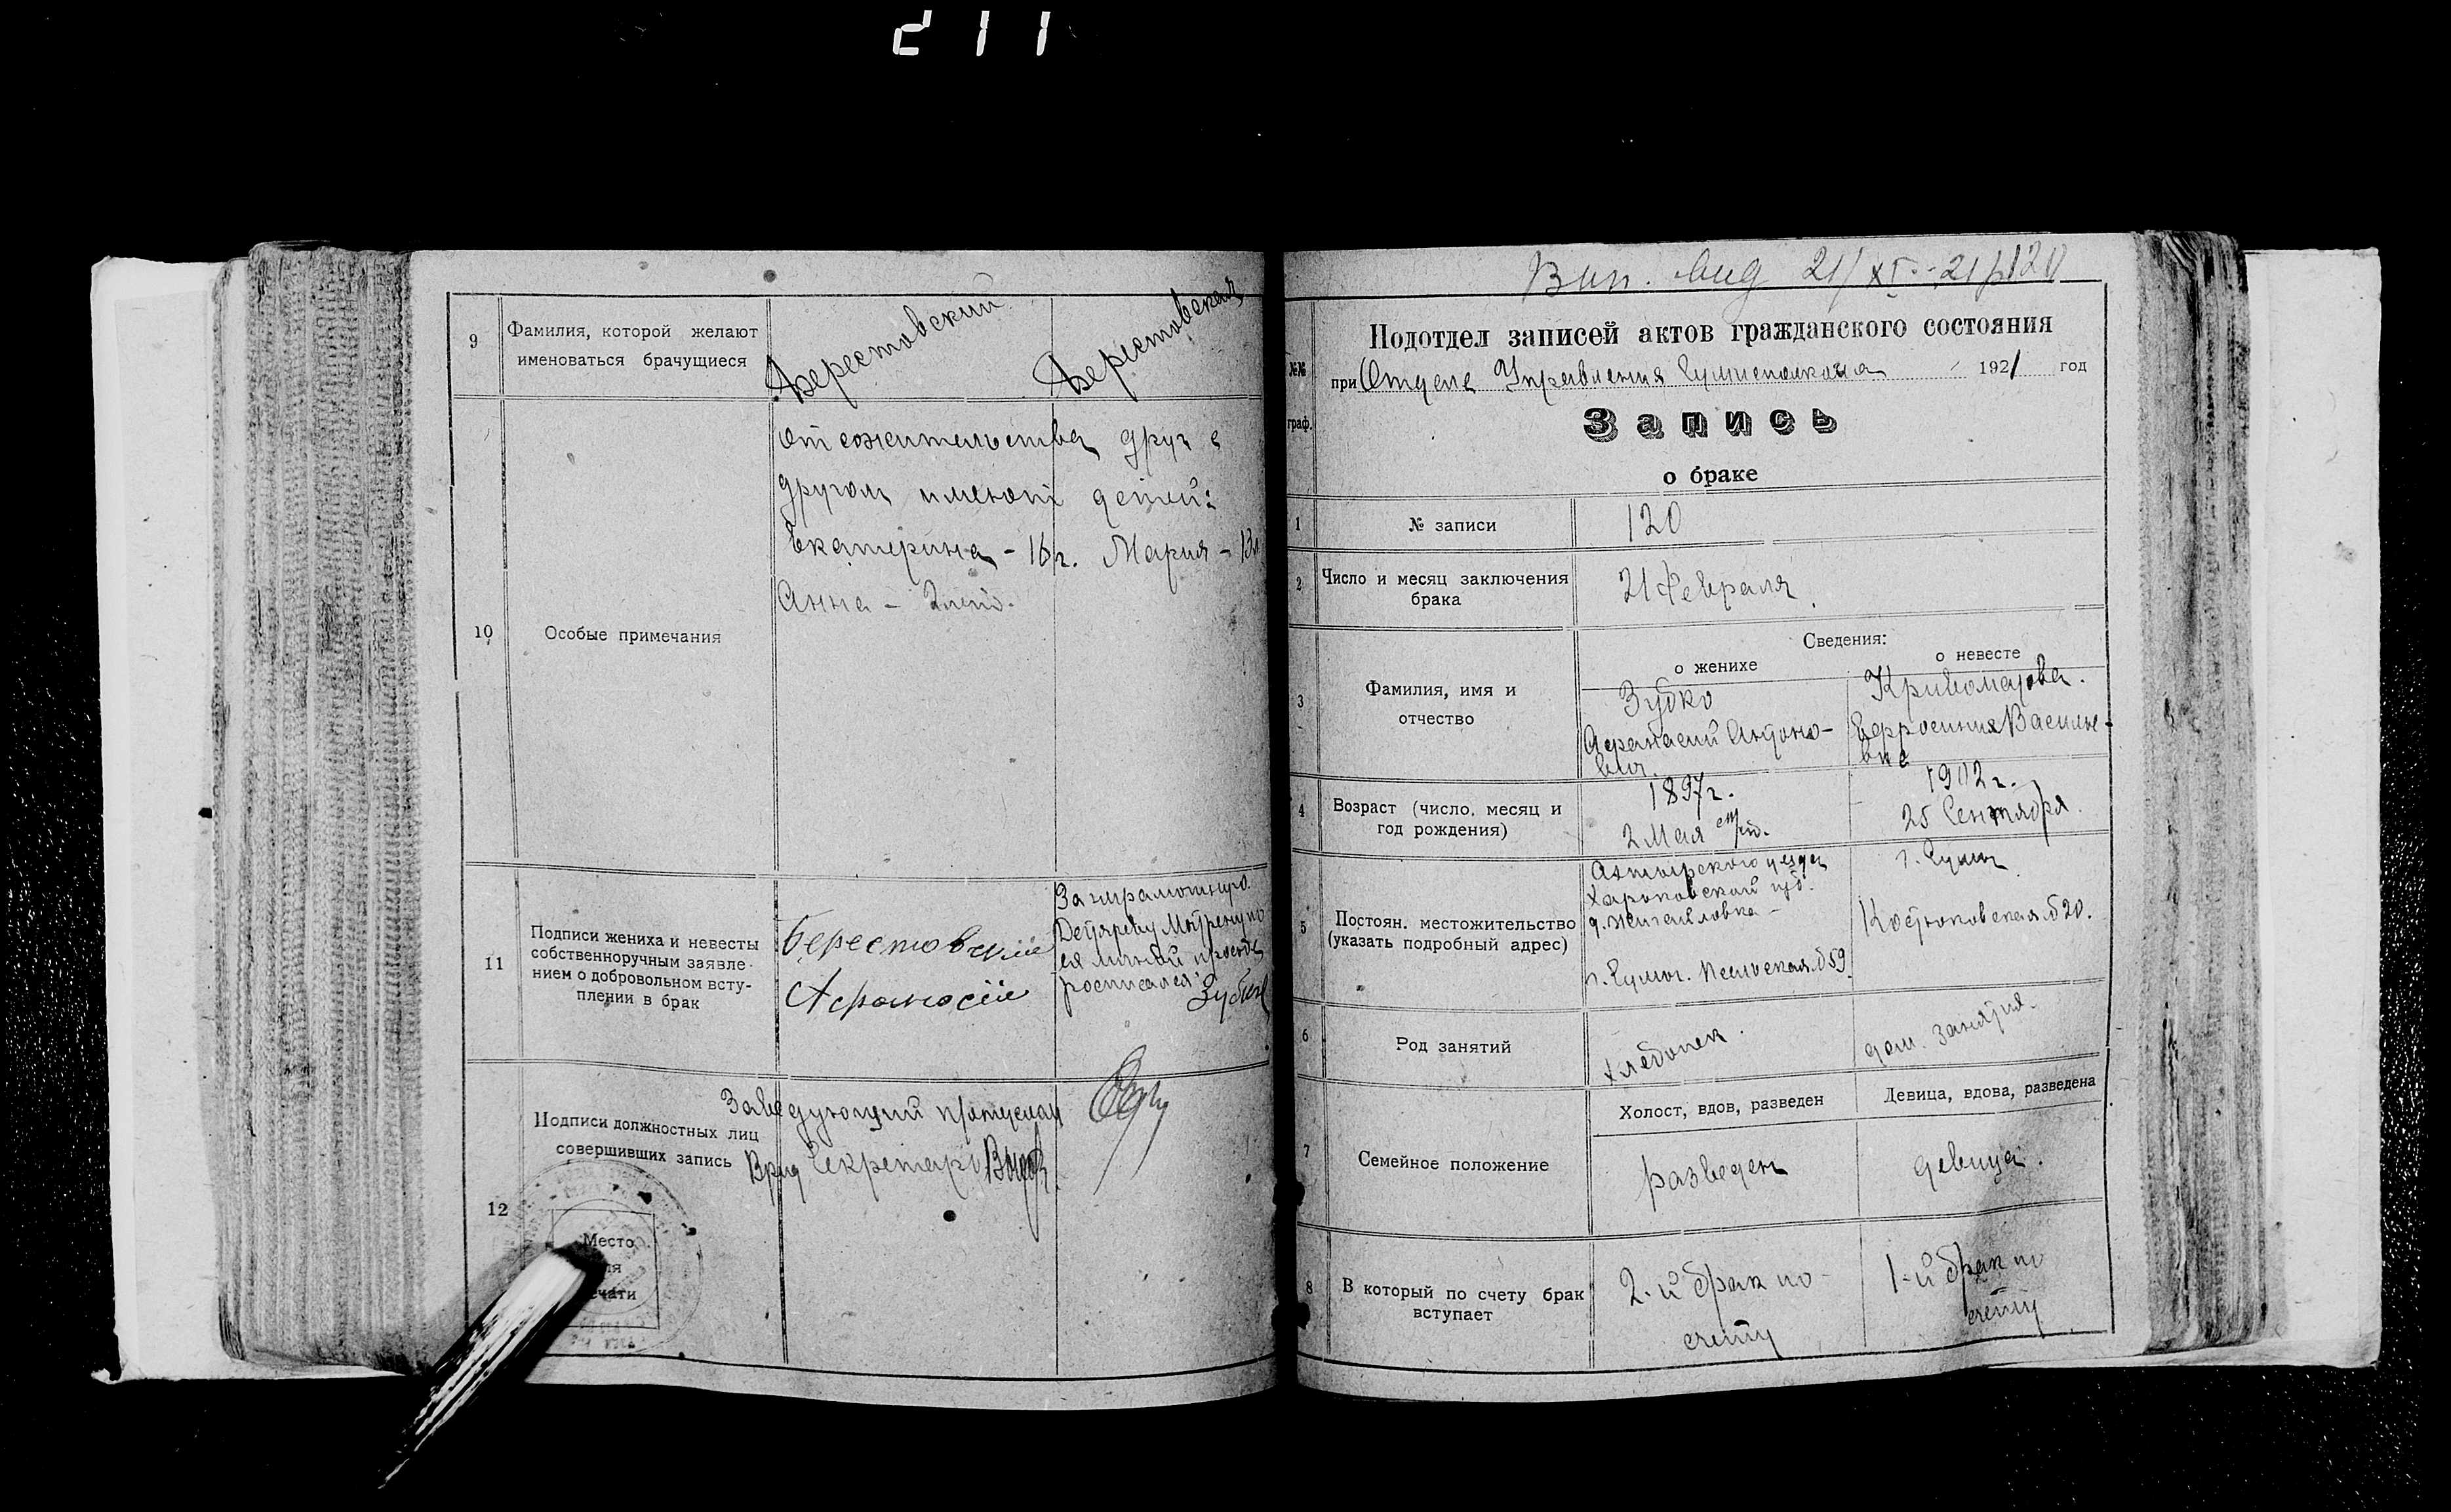 211
9
Фамилия, которой желают
именоваться брачущиеся
Берестовский
Берестовская
10
Особые примечания
от сожительства друг с
другом имеют детей:
Екатерина - 16 г. Мария - 13 л
Анна - 2 лет.
11
Подписи жениха и невесты
собственноручным заявле-
нием о добровольном всту-
плении в брак
Берестовскій
Афанасій
За неграмотную
Дегтяреву Матрену по
ея личной просьбе
росписался
12
Подписи должностных лиц
совершивших запись
Заведующий
Врид Секретарь
Место
ечати
21/XI - 21 р 120
Подотдел записей актов гражданского состояния
№№
граф.
при Отделе Управления Сумисполкома 1921 год
Запись
о браке
1
№ записи
120
2
Число и месяц заключения
брака
21 февраля
Сведения:
о женихе
о невесте
3
Фамилия, имя и
отчество
Зубко
Афанасий Антоно-
вич.
Ефросиния Василье-
4
Возраст (число, месяц и
год рождения)
1897 г.
2 Мая ст/ст.
1902 г.
25 Сентября.
5
Постоян. местожительство
(указать подробный адрес)
Ахтырского уезда
Харьковской губ.
г. Сумы. 59.
г. Сумы
20.
6
Род занятий
хлебопек.
дом. занятия.
7
Семейное положение
Холост, вдов, разведен
Девица, вдова, разведена
разведен
девица.
8
В который по счету брак
вступает
2-й брак по
счету
1-й брак по
счету